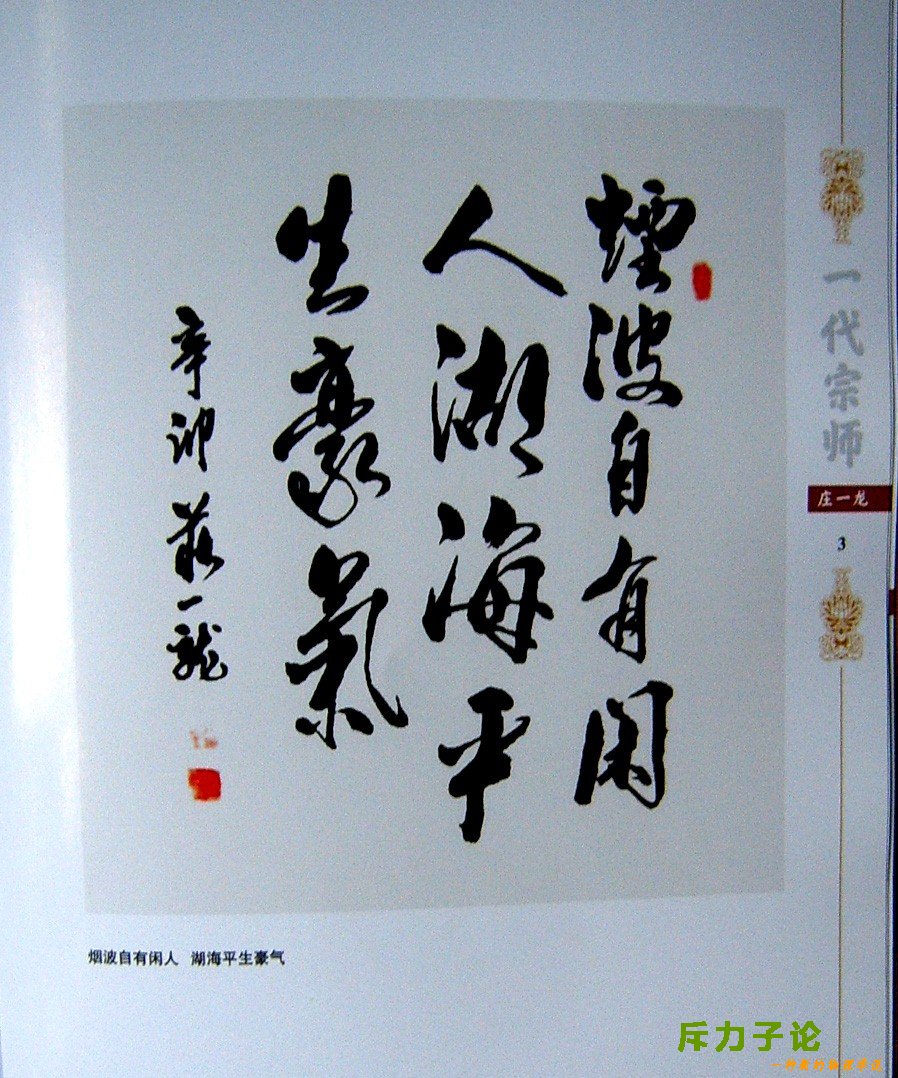 煙波自有閑
人湖海平
生豪氣
辛卯莊一龍
一代宗师
庄一龙
3
烟波自有闲人 湖海平生豪气
斥力子论